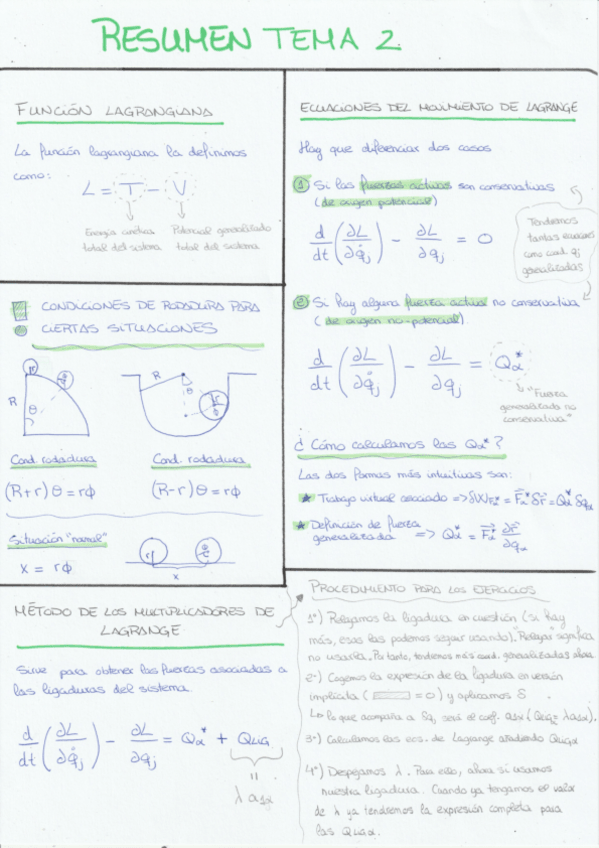 RESUMEN TEMA 2
FUNCIÓN LAGRANGIANA
La función lagrangiana la definimos
como:
L = T - V
Energía cinética
total del sistema
Potencial generalizado
total del sistema
ECUACIONES DEL MOVIMIENTO DE LAGRANGE
Hay que diferenciar dos casos
① Si las fuerzas activas son conservativas
(de origen potencial)
d/dt (∂L/∂q̇j) - ∂L/∂qj = 0
Tendremos
tantas ecuaciones
como coord. qj
generalizadas
② Si hay alguna fuerza activa no conservativa
(de origen no-potencial).
d/dt (∂L/∂q̇j) - ∂L/∂qj = Qα*
"Fuerza
generalizada no
conservativa"
¿Cómo calculamos las Qα*?
Las dos formas más intuitivas son:
★ Trabajo virtual asociado => δWFα* = F⃗α* δr⃗ = Qα* δqα
★ Definición de fuerza
generalizada => Qα* = F⃗α* ∂r⃗/∂qα
CONDICIONES DE RODADURA PARA
CIERTAS SITUACIONES
R θ r
R θ r
Cond. rodadura
Cond. rodadura
(R+r)θ = rϕ
(R-r)θ = rϕ
Situación "normal"
x = rϕ
r
x
MÉTODO DE LOS MULTIPLICADORES DE
LAGRANGE
Sirve para obtener las fuerzas asociadas a
las ligaduras del sistema.
d/dt (∂L/∂q̇j) - ∂L/∂qj = Qα* + QLIG
λ a1α
PROCEDIMIENTO PARA LOS EJERCICIOS
1º) Relajamos la ligadura en cuestión (si hay
más, esas las podemos seguir usando). "Relajar" significa
no usarla. Por tanto, tendremos más coord. generalizadas ahora
2º) Cogemos la expresión de la ligadura en versión
implícita ( = 0) y aplicamos δ
↳ lo que acompaña a δqα será el coef. a1α (
3º) Calculamos las ecs. de Lagrange añadiendo QLIGα
4º) Despejamos λ. Para ello, ahora sí usamos
nuestra ligadura. Cuando ya tengamos el valor
de λ ya tendremos la expresión completa para
las QLIGα.